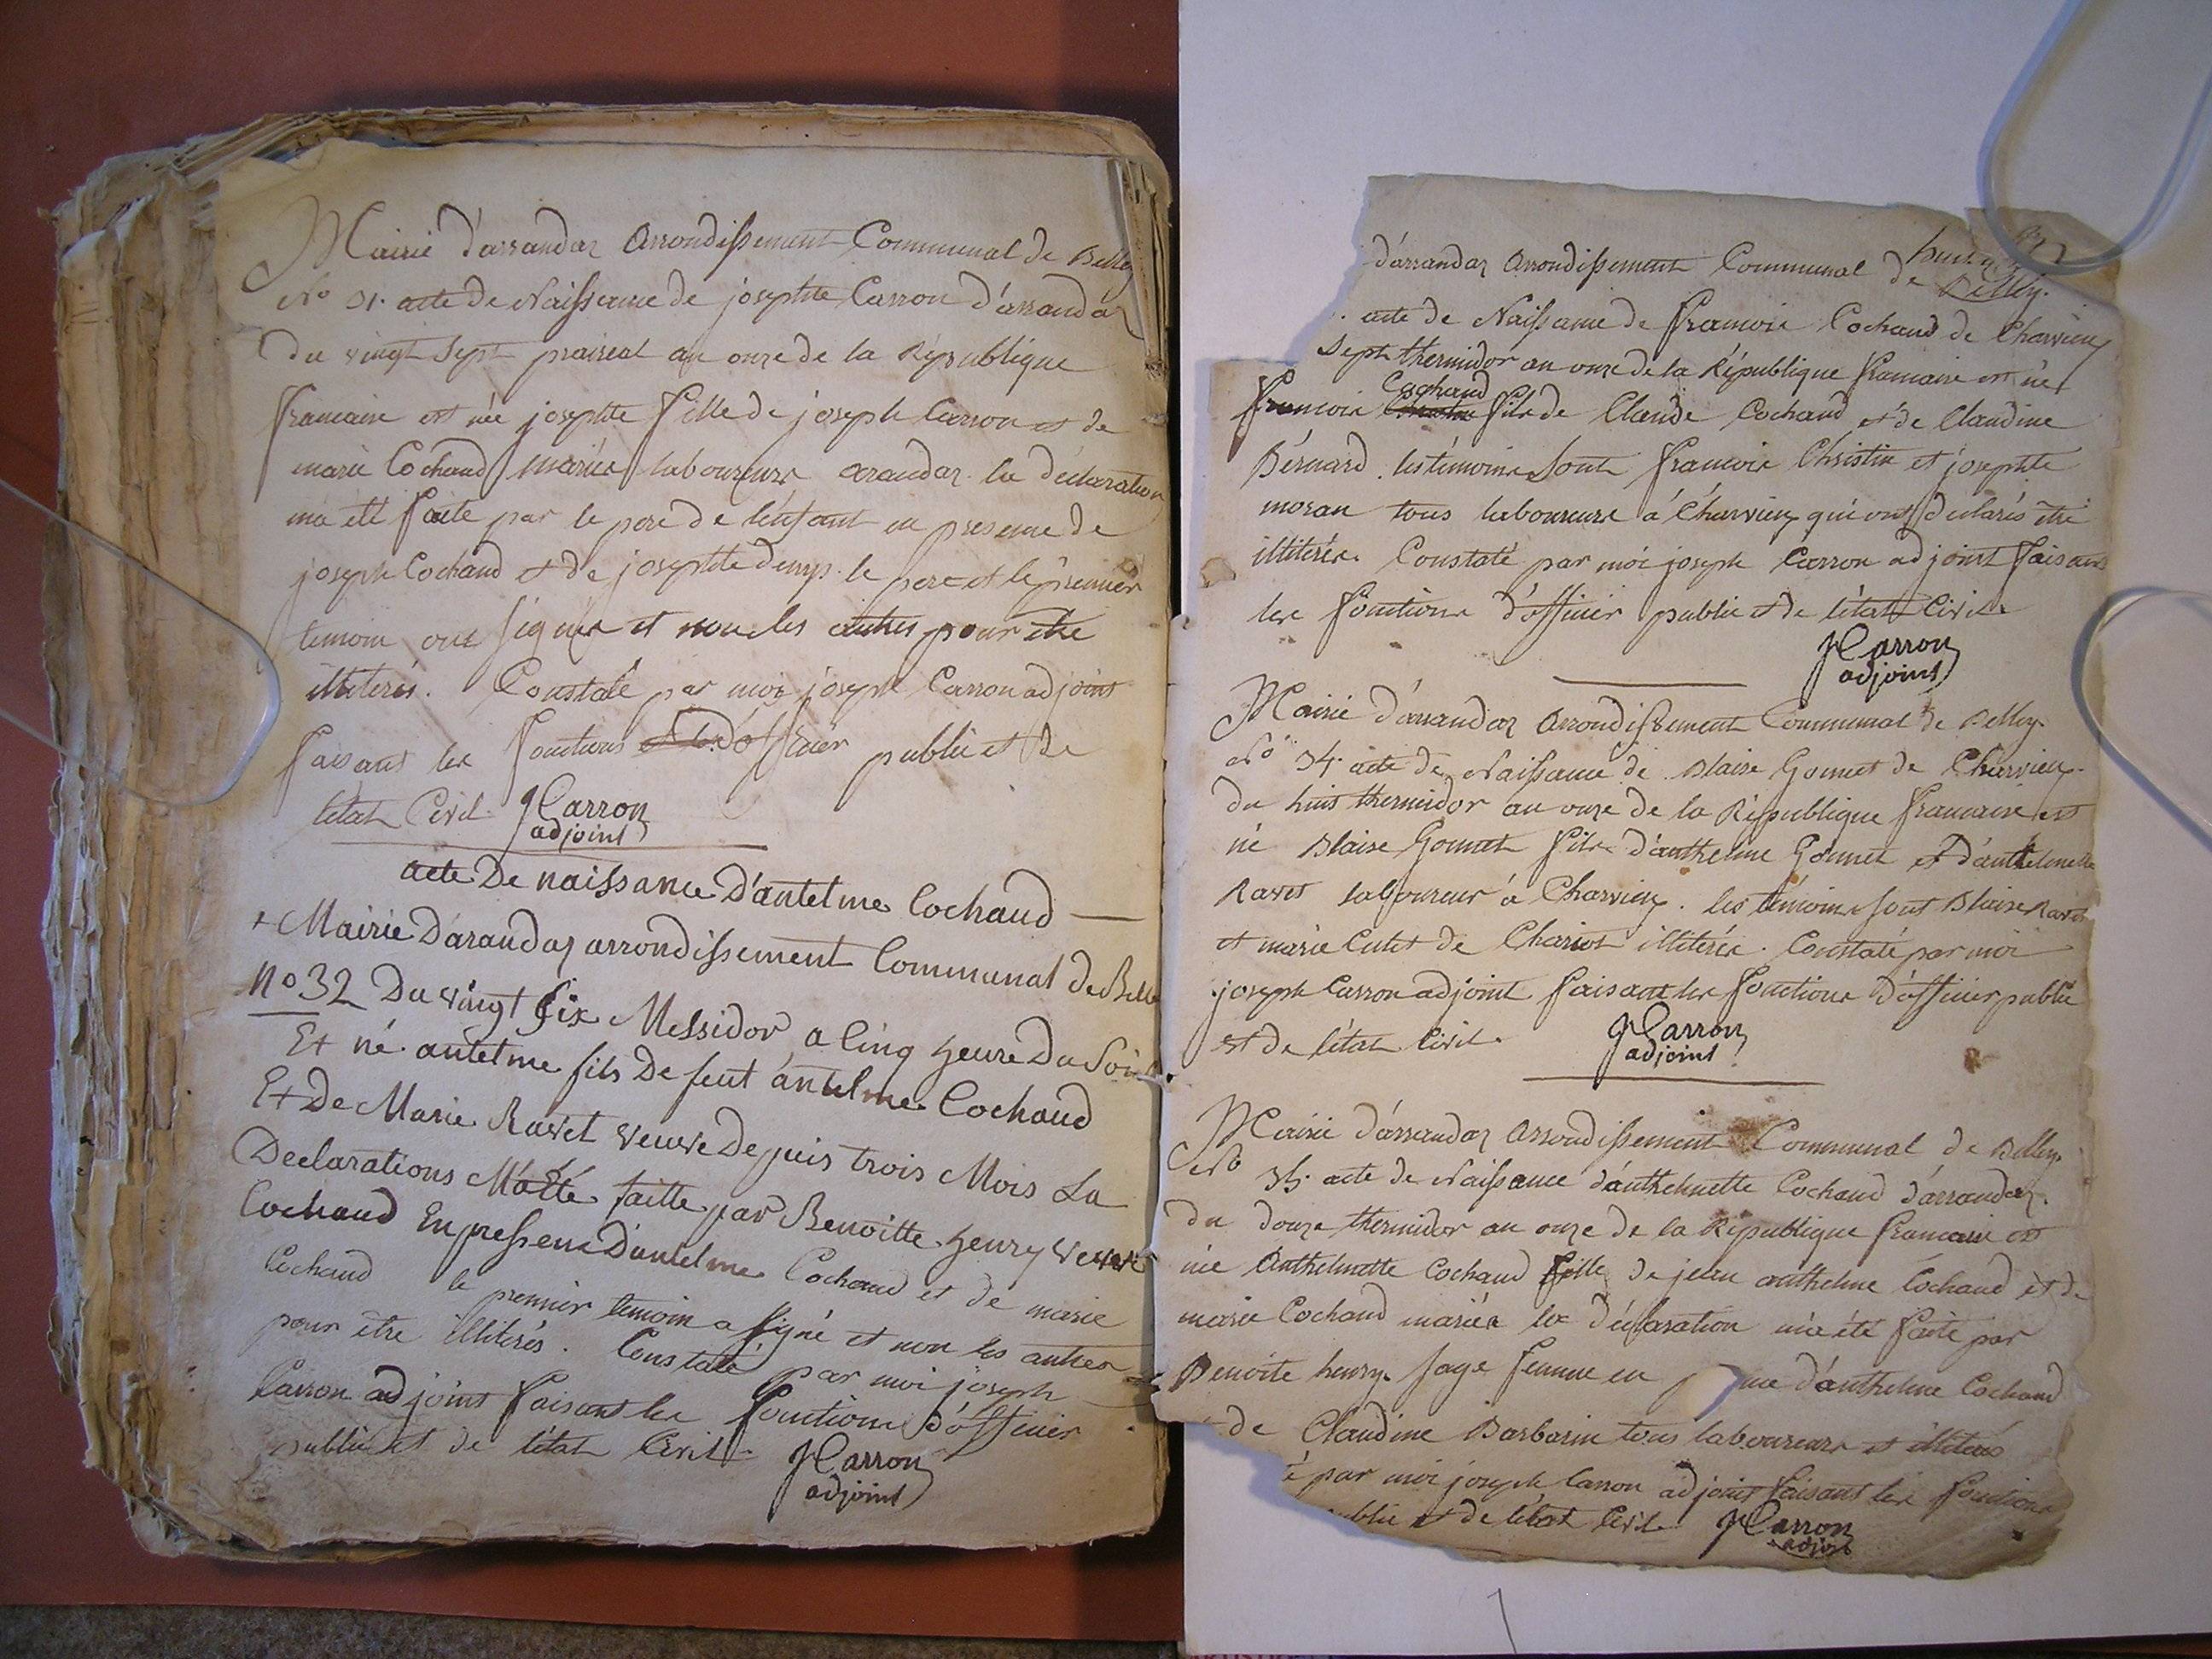 Mairie d'arrandaz Arrondissement Communal de Belley
No 31. acte de Naissance de josephte Carron d'arrandaz
Du vingt Sept praireal an onze de la République
francaise est née josephte fille de joseph Carron et de
marie Cochaud mariés laboureurs arandaz. la déclaration
m'a été faite par le pere de l'enfant en presence de
joseph Cochaud et de josephte le pere et le premier
temoin ont signés et non les autres pour etre
illiterés. Constaté par moi joseph Carron adjoint
faisant les fonctions d'officier public et de
l'état Civil. JCarron
adjoint
acte De naissance D'antelme Cochaud
+ Mairie D'arandaz arrondissement Communal de Belle
No 32 Du vingt six Messidor a Cinq heure Du Soir
Et né antelme fils De feut antelme Cochaud
Et De Marie Ravet veuve Depuis trois Mois La
Declarations M'a Eté faitte par Benoitte henry veuve
Cochaud En pressence D'antelme Cochaud et de marie
Cochaud le premier temoin a signé et non les autres
pour être illiterés. Constaté par moi joseph
Carron adjoint faisant les fonctions d'officier
public et de l'état Civil. JCarron
adjoint
d'arrandaz Arrondissement Communal de Belley.
acte de Naissance de francois Cochaud de Charvieu
Sept thermidor an onze de la République francaise est né
Cochaud
francois fils de Claude Cochaud et de Claudine
Bérnard. les témoins sont francois Christin et josephte
moran tous laboureurs á Charvieu qui ont déclarés être
illiterés. Constaté par moi joseph Carron adjoint faisant
les fonctions d'officier public et de l'état Civil.
JCarron
adjoint
Mairie d'arrandaz Arrondissement Communal de Belley.
No 34. acte de Naissance de Blaise Gonnet de Charvieu.
Du huit thermidor an onze de la République francaise est
né Blaise Gonnet fils d'anthelme Gonnet et d'anthelmette
Ravet laboureur á Charvieu. les témoins sont Blaise Ravet
et marie Cutet de Chariot illiterés. Constaté par moi
joseph Carron adjoint faisant les fonctions d'officier public
et de l'état Civil. JCarron
adjoint
Mairie d'arrandaz Arrondissement Communal de Belley.
No 35. acte de Naissance d'anthelmette Cochaud d'arrandaz.
du douze thermidor an onze de la République francaise est
née Anthelmette Cochaud fille de jean anthelme Cochaud et de
marie Cochaud mariés la déclaration m'a été faite par
Benoite henry. sage femme en d'anthelme Cochaud
de Claudine Barbarin tous laboureurs et illiterés
par moi joseph Carron adjoint faisant les fonctions
et de l'état Civil. JCarron
adjoint